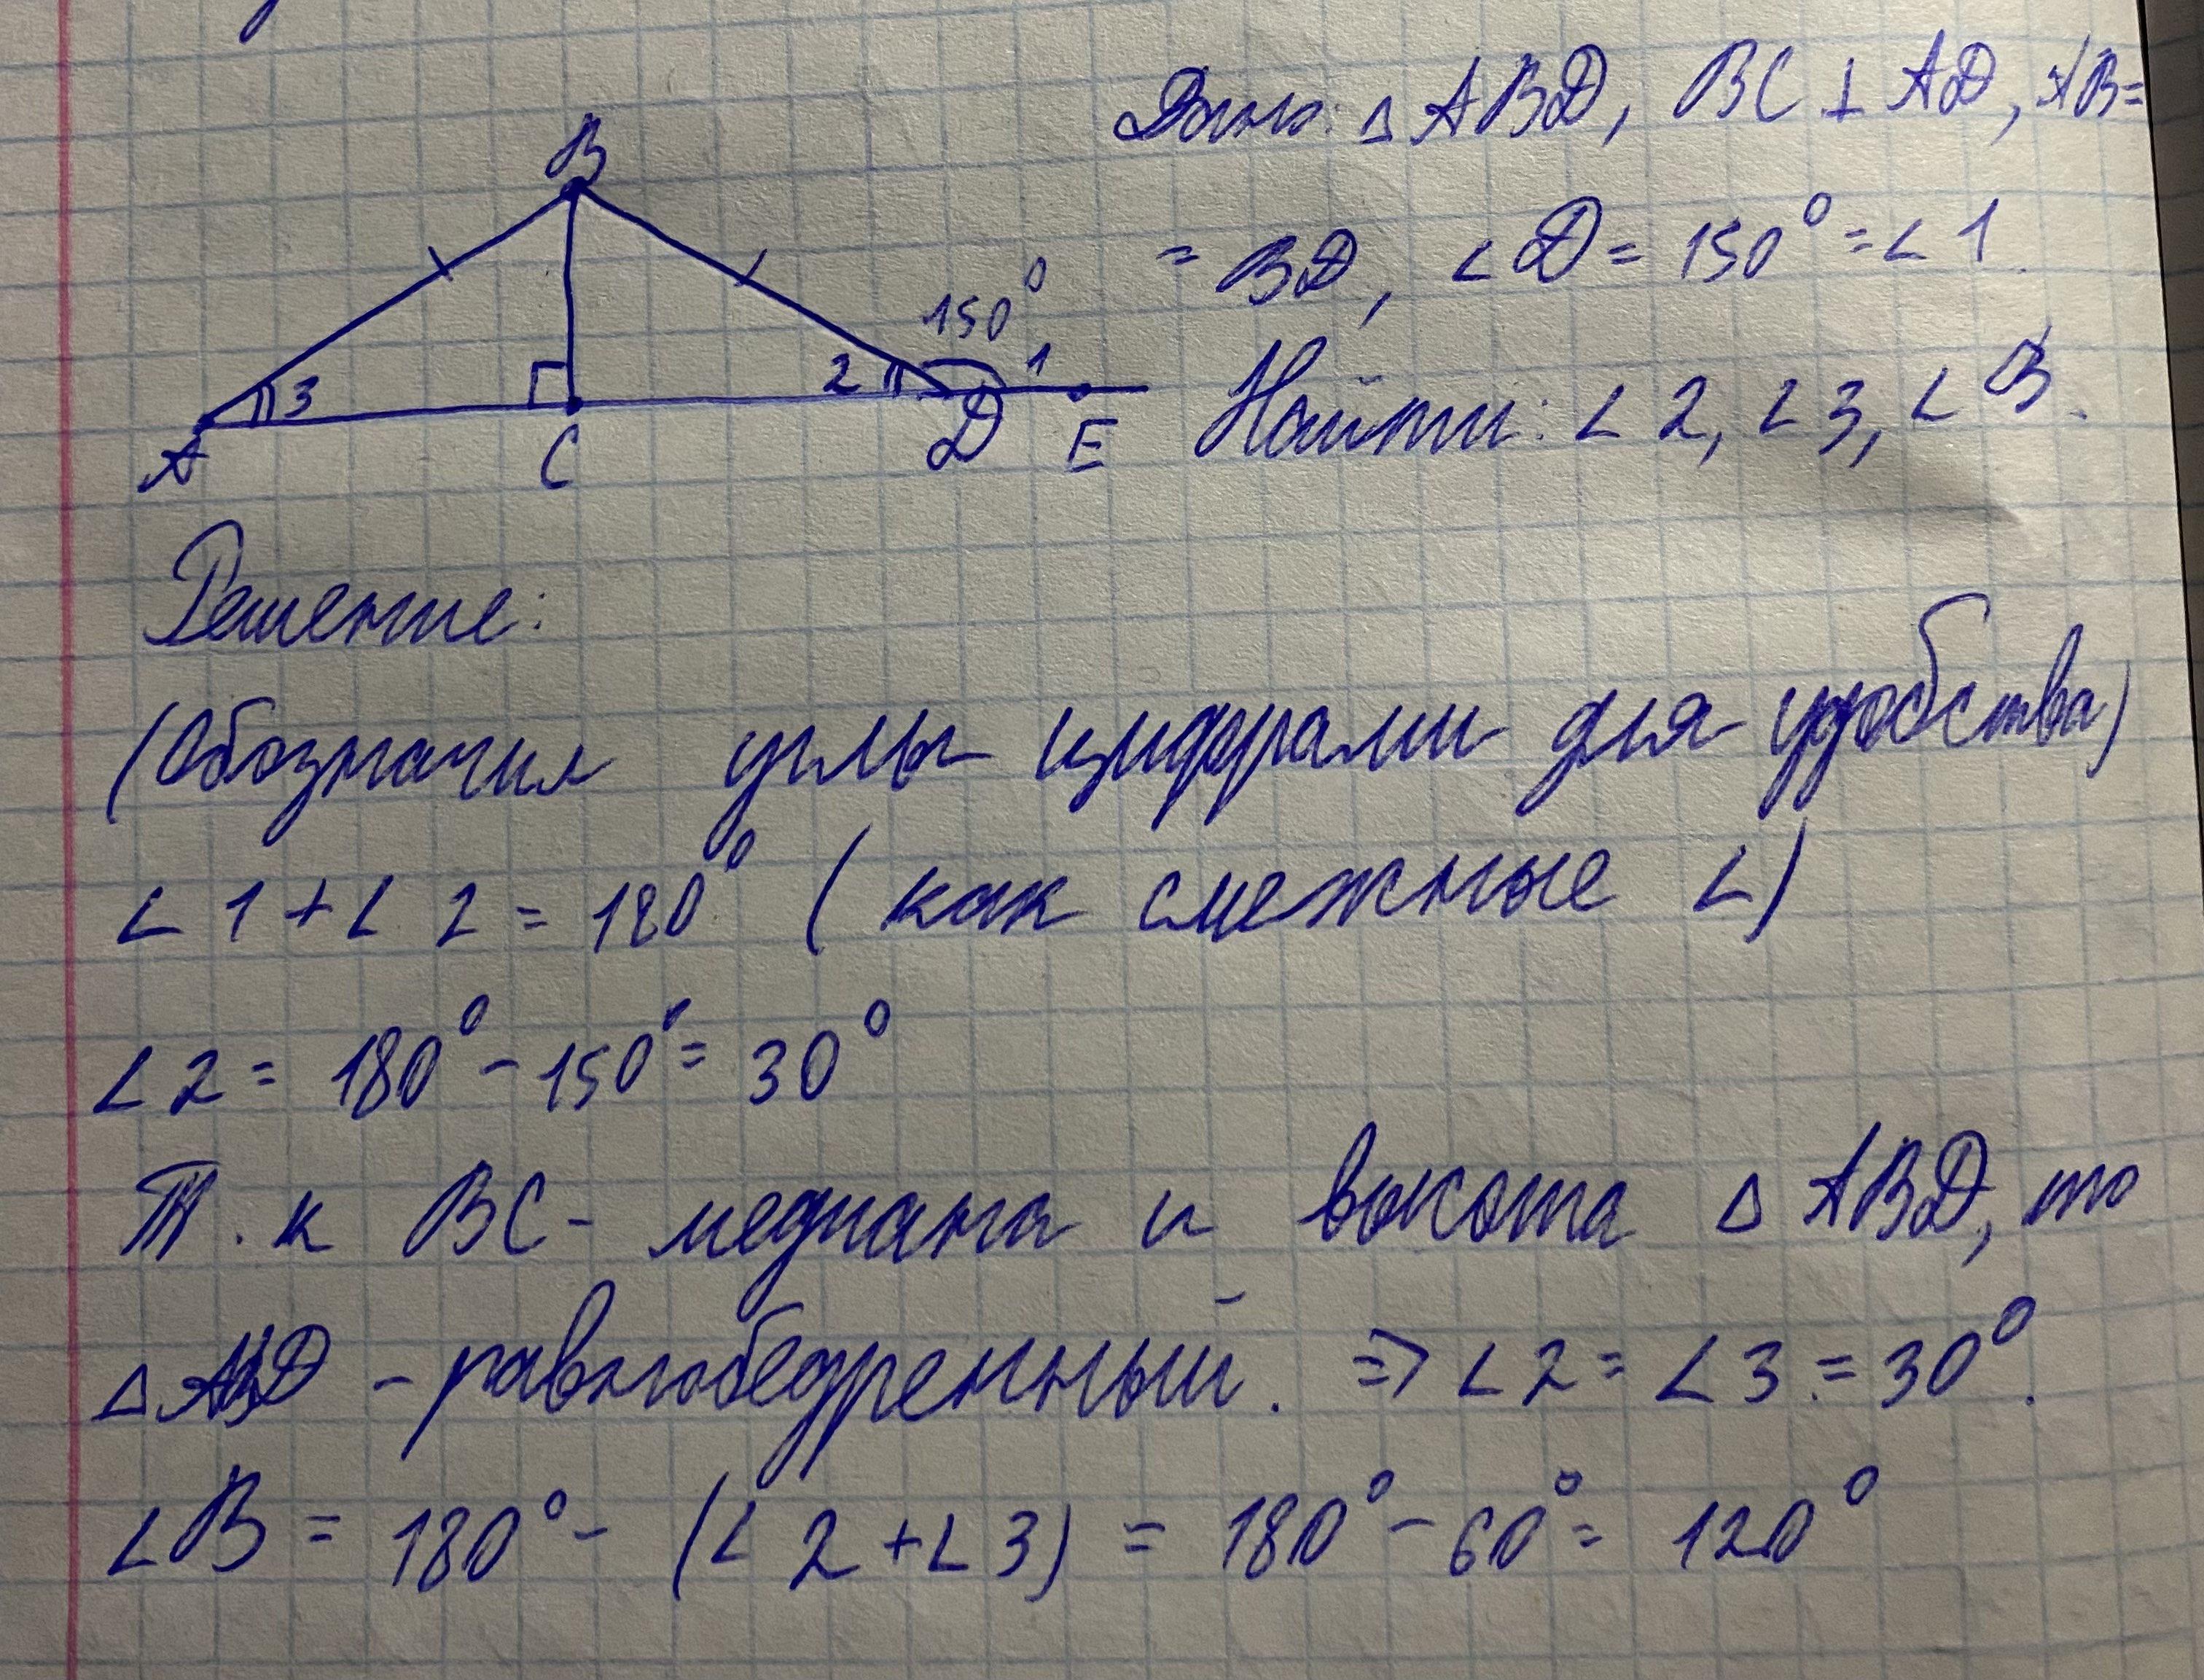 Дано: △ ABD, BC ⊥ AD, AB=
= BD, ∠D = 150° = ∠1.
Найти: ∠2, ∠3, ∠B.
B
150°
3
2
1
A
C
D
E
Решение:
(Обозначил углы цифрами для удобства)
∠1 + ∠2 = 180° (как смежные ∠)
∠2 = 180° - 150° = 30°
Т.к BC - медиана и высота △ ABD, то
△ABD - равнобедренный. => ∠2 = ∠3 = 30°.
∠B = 180° - (∠2 + ∠3) = 180° - 60° = 120°